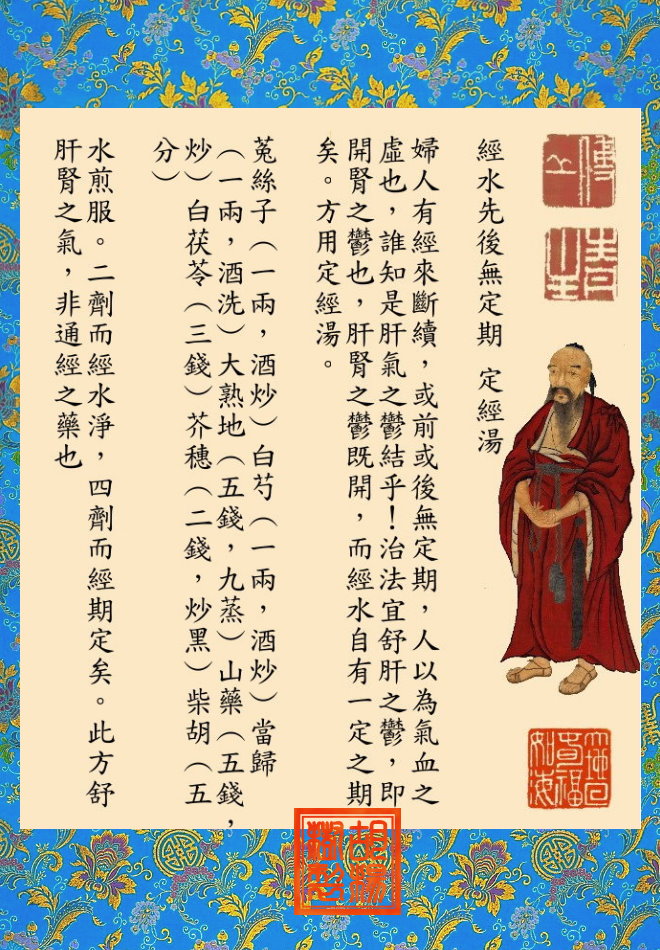 經水先後無定期 定經湯
婦人有經來斷續，或前或後無定期，人以為氣血之
虛也，誰知是肝氣之鬱結乎！治法宜舒肝之鬱，即
開腎之鬱也，肝腎之鬱既開，而經水自有一定之期
矣。方用定經湯。
菟絲子（一兩，酒炒）白芍（一兩，酒炒）當歸
（一兩，酒洗）大熟地（五錢，九蒸）山藥（五錢，
炒）白茯苓（三錢）芥穗（二錢，炒黑）柴胡（五
分）
水煎服。二劑而經水淨，四劑而經期定矣。此方舒
肝腎之氣，非通經之藥也